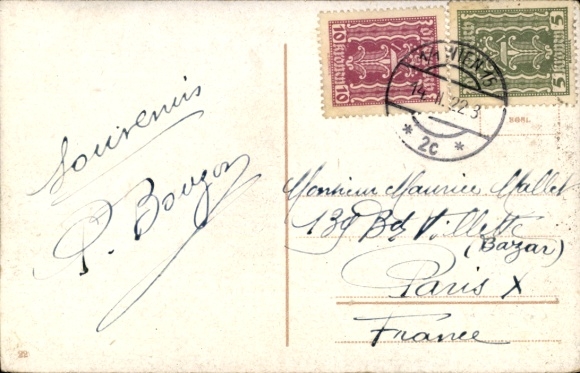 Souvenirs
P. Bougon
10 KRONEN 10
5 KRONEN 5
14. II. 22. 3
* 2c *
Monsieur Maurice Mallet
139 Bd Villette
(Bazar)
Paris X
France
22